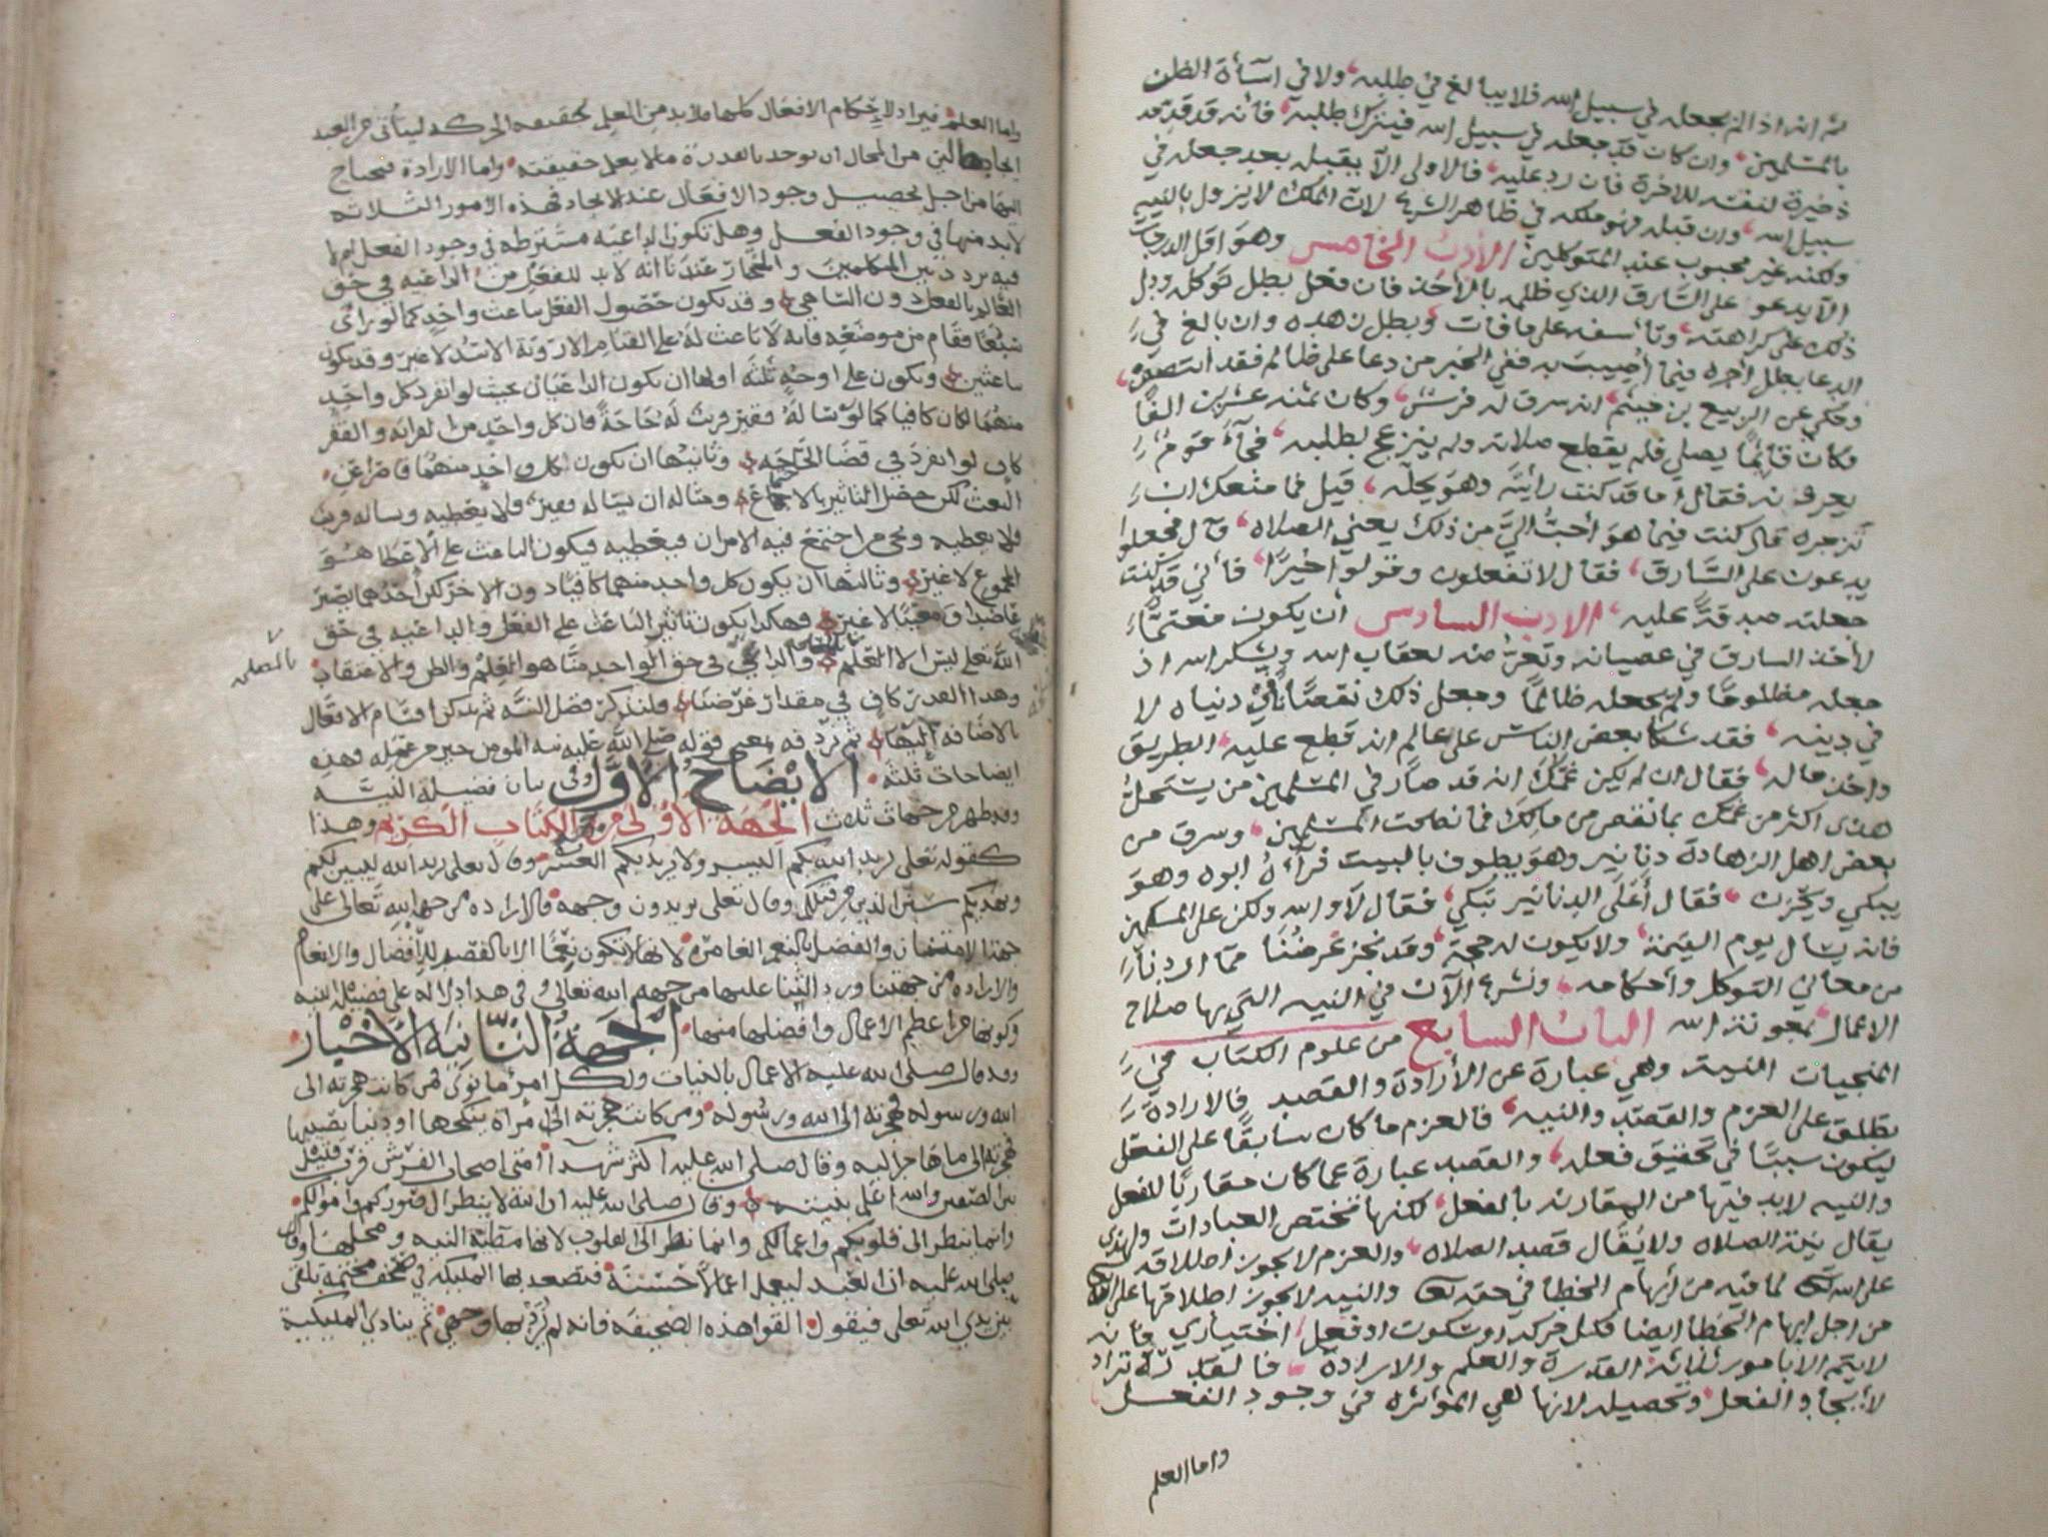 ثم انه اذا لم يجعله في سبيل الله فلا يبالغ في طلبه ولا في اسآءة الظن
بالمسلمين وان كان قد جعله في سبيل الله فيترك طلبه فانه قد قدمه
ذخيرة لنفسه للاخرة فان رد عليه فالاولى الا يقبله بعد جعله في
سبيل الله وان قبله فهو ملكه في ظاهر الشرع لان الملك لا يزول بالنيه
ولكنه غير محبوب عند المتوكلين الأدب الخامس وهو اقل الدرجات
الا يدعو على السارق الذي ظلمه بالأخذ فان فعل بطل توكله ودل
ذلك على كراهته وتأسفه على ما فات وبطل زهده وان بالغ في
الدعا بطل اجره فيما أصيب به ففي الخبر من دعا على ظالم فقد انتصر
وحكي عن الربيع بن خيثم انه سرق له فرس وكان ثمنه عشرين الفًا
وكان قائمًا يصلي فلم يقطع صلاته ولم ينزعج لطلبه فجآءه قوم
يعرفونه فقال اما قد كنت رأيته وهو يحله قيل فما منعك ان
تزجره قال كنت فيما هو أحبُّ اليَّ من ذلك يعني الصلاه قال فجعلوا
يدعون على السَّارق فقال لا تفعلون وقولوا خيرًا فأني قد كنت
جعلته صدقةً عليه الادب السادس أن يكون مغتمًّا
لأخذ السارق في عصيانه وتعرضه لعقاب الله ويشكر الله اذ
جعله مظلومًا ولم يجعله ظالمًا وجعل ذلك نقصًا في دنياه لا
في دينه فقد شكا بعض الناس على عالم انه قطع عليه الطريق
واخذ ماله فقال ان لم يكن غمّك انه قد صار في المسلمين من يستحل
هذا اكثر من غمك بما نقص من مالك فما نصحت المسلمين وسرق من
بعض اهل الزهادة دنانير وهو يطوف بالبيت فرآه ابوه وهو
يبكي ويحزن فقال أعَلى الدنانير تبكي فقال لا والله ولكن على المسكين
فانه يسأل يوم القيمة ولا يكون له حجة وقد نجز غرضُنا مما اردنا
من معاني التوكل وأحكامه ونشرع الآن في النيه التي بها صلاح
الاعمال بمعونة الله الباب السابع من علوم الكتاب في
المنجيات النية وهي عبارة عن الأرادة والقصد فالارادة
تطلق على العزم والقصد والنيه فالعزم ما كان سابقًا على الفعل
ليكون سببًا في تحقيق فعله والقصد عبارة عما كان مقارنًا للفعل
والنيه لابد فيها من المقارنه بالفعل لكنها تختص العبادات ولهذا
يقال نية الصلاه ولا يُقال قصد الصلاه والعزم لا يجوز اطلاقه
على الله تع لما فيه من إيهام الخطأ في حقه تع والنيه لا يجوز اطلاقها على الله
من اجل ايهام الخطأ ايضا فكل حركه او سكون او فعل اختياري فانه
لا يتم الا بامور ثلاثة القدرة والعلم والارادة فالقدرة تراد
لأيجاد الفعل وتحصيله لانها هي المؤثره في وجود الفعل
واما العلم
واما العلم فيراد لاحكام الافعال كلها فلابد من العلم بحقيقه الحركه ليتأتى من العبد
ايجادها اذ من المحال ان يوجد بالقدرة ما لا يعلم حقيقته واما الارادة فيحتاج
اليها من اجل تحصيل وجود الافعال عند الايجاد فهذه الامور الثلاثه
لابد منها في وجود الفعل وهل تكون الداعيه مشترطه في وجود الفعل ام لا
فيه تردد بين المتكلمين والمختار عندنا انه لا بد للفعل من الداعيه في حق
العالم بالفعل دون الساهي وقد يكون حصول الفعل بباعث واحدٍ كما لو راى
سبُعًا فقام من موضعه فانه لا باعث له على القيام الا رؤية الاسد لا غير وقد يكون
بباعثين ويكون على اوجه ثلثه اولها ان يكون الداعيان بحيث لو انفرد كل واحد
منهما لكان كافيا كما لو سأله فقير قريب له حاجة فان كل واحد من القرابه والفقر
كافٍ لو انفرد في قضا الحاجه وثانيها ان يكون كل واحد منهما قاصرا عن
البعث لكن حصل التاثير بالاجتماع ومثاله ان يساله فقير فلا يعطيه ويساله قريب
فلا يعطيه ونحو من اجتمع فيه الامران فيعطيه فيكون الباعث على الاعطا هو
المجموع لا غير وثالثها ان يكون كل واحد منهما كافيا دون الاخر لكن احدهما يصير
عاضدا ومعينًا لا غير فهكذا يكون تاثير الباعث على الفعل والداعيه في حق
الله تعلى ليس الا العلم بالمصالح والداعي في حق الواحد منا هو العلم والظن والاعتقاد
بالمصلحه
وهذا القدر كافٍ في مقدار غرضنا ولنذكر فضل النيه ثم نذكر اقسام الافعال
بالاضافه اليها ثم نردفه بمعنى قوله صلى الله عليه نيه المومن خير من عمله وهذه
ايضاحات ثلثه الايضاح الأول في بيان فضيلة النيه
وقد ظهر من جهات ثلاث الجهة الاولى من الكتاب الكريم وهذا
كقوله تعلى يريد الله بكم اليسر ولا يريد بكم العسر وقال تعلى يريد الله ليبين لكم
ويهديكم سنن الذين من قبلكم وقال تعلى يريدون وجهه فالاراده من جهة الله تعالى على
جهة الامتنان والفضل بالنعم الغامره لانها لا تكون نِعَمًا الا بالقصد للافضال والانعام
والاراده من جهتنا ورد الثنا عليها من جهه الله تعالى وفي هذا دلاله على فضيله النيه
وكونها من اعظم الاعمال وافضلها منها الجهة الثانية الأخبار
وقد قال صلى الله عليه الاعمال بالنيات ولكل امرئ ما نوى فمن كانت هجرته الى
الله ورسوله فهجرته الى الله ورسوله ومن كانت هجرته الى امراة ينكحها او دنيا يصيبها
فهجرته الى ما هاجر اليه وقال صلى الله عليه اكثر شهدآ امتى اصحاب الفرش فرب قتيل
بين الصفين والله اعلم بنيته وقال صلى الله عليه ان الله لا ينظر الى صوركم واموالكم
وانما ينظر الى قلوبكم واعمالكم وانما نظر الى القلوب لانها مظنة النيه ومحلها وقال
صلى الله عليه ان العبد ليعمل اعمالا حسنة فتصعد بها المليكه في صحف مختمة فتلقى
بين يدي الله تعلى فيقول القوا هذه الصحيفه فانه لم يُرِد بها وجهي ثم ينادي المليكية